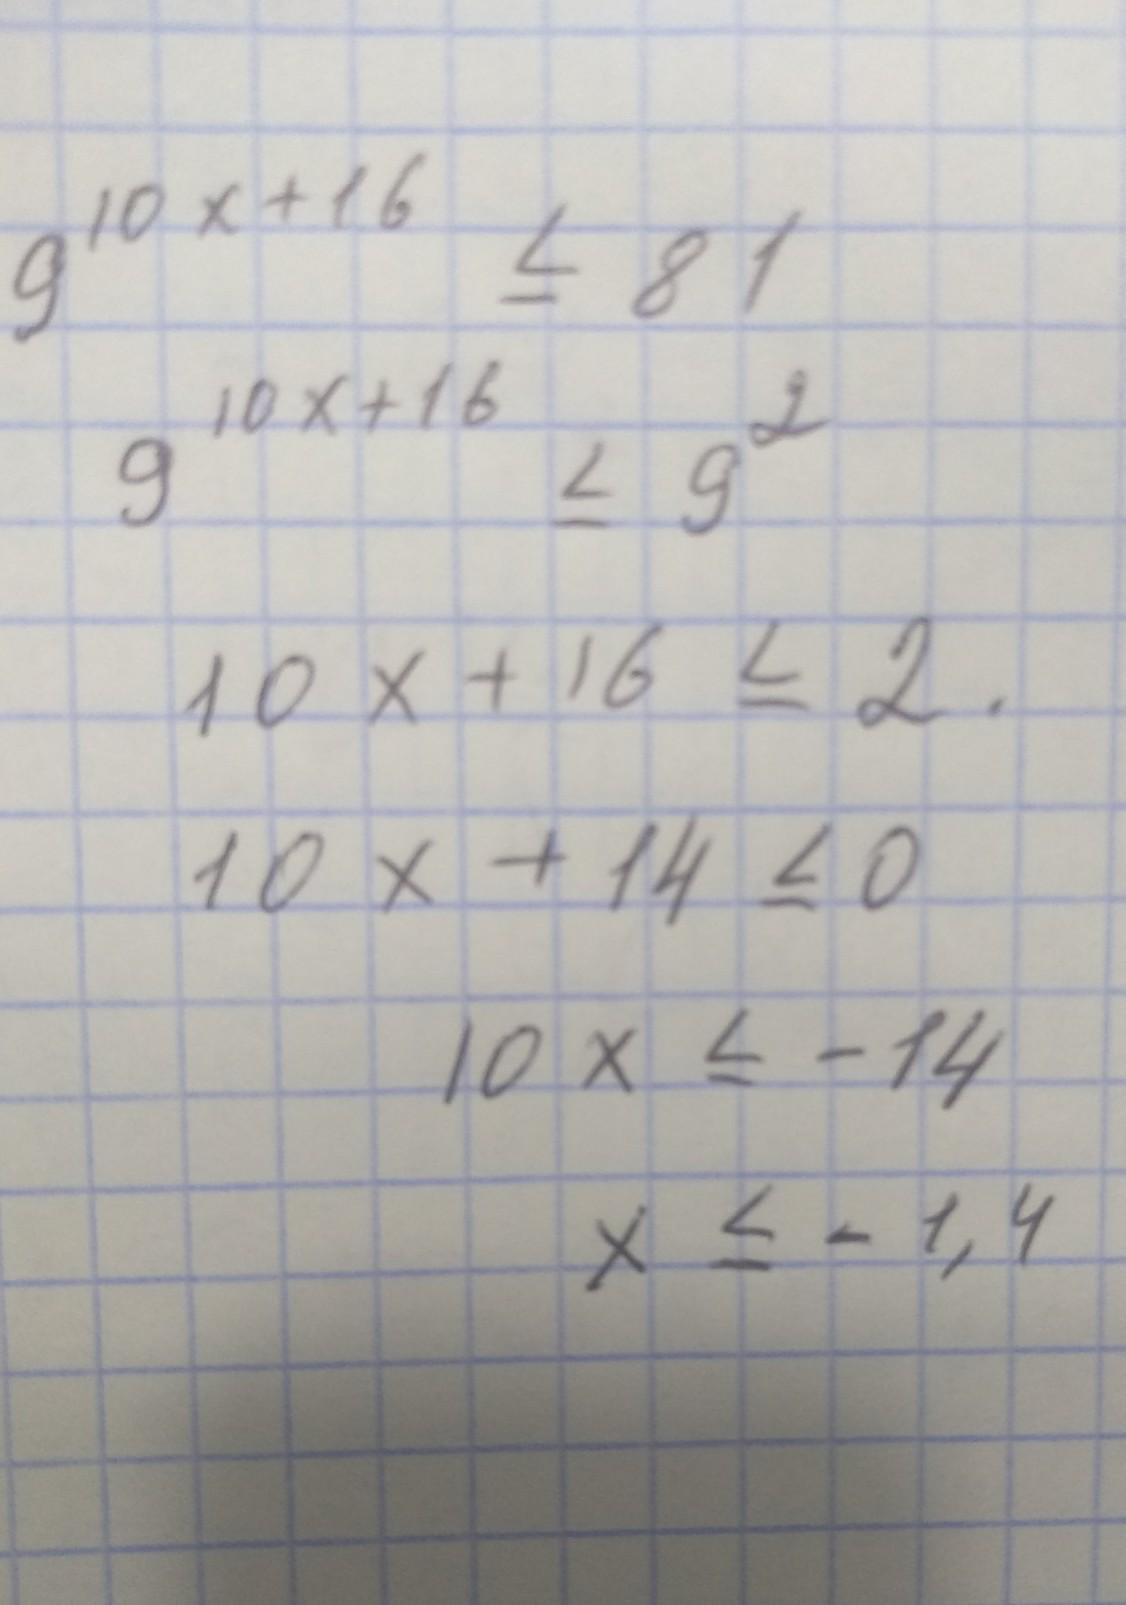 9^{10x+16} ≤ 81
9^{10x+16} ≤ 9^2
10x + 16 ≤ 2.
10x + 14 ≤ 0
10x ≤ -14
x ≤ -1,4